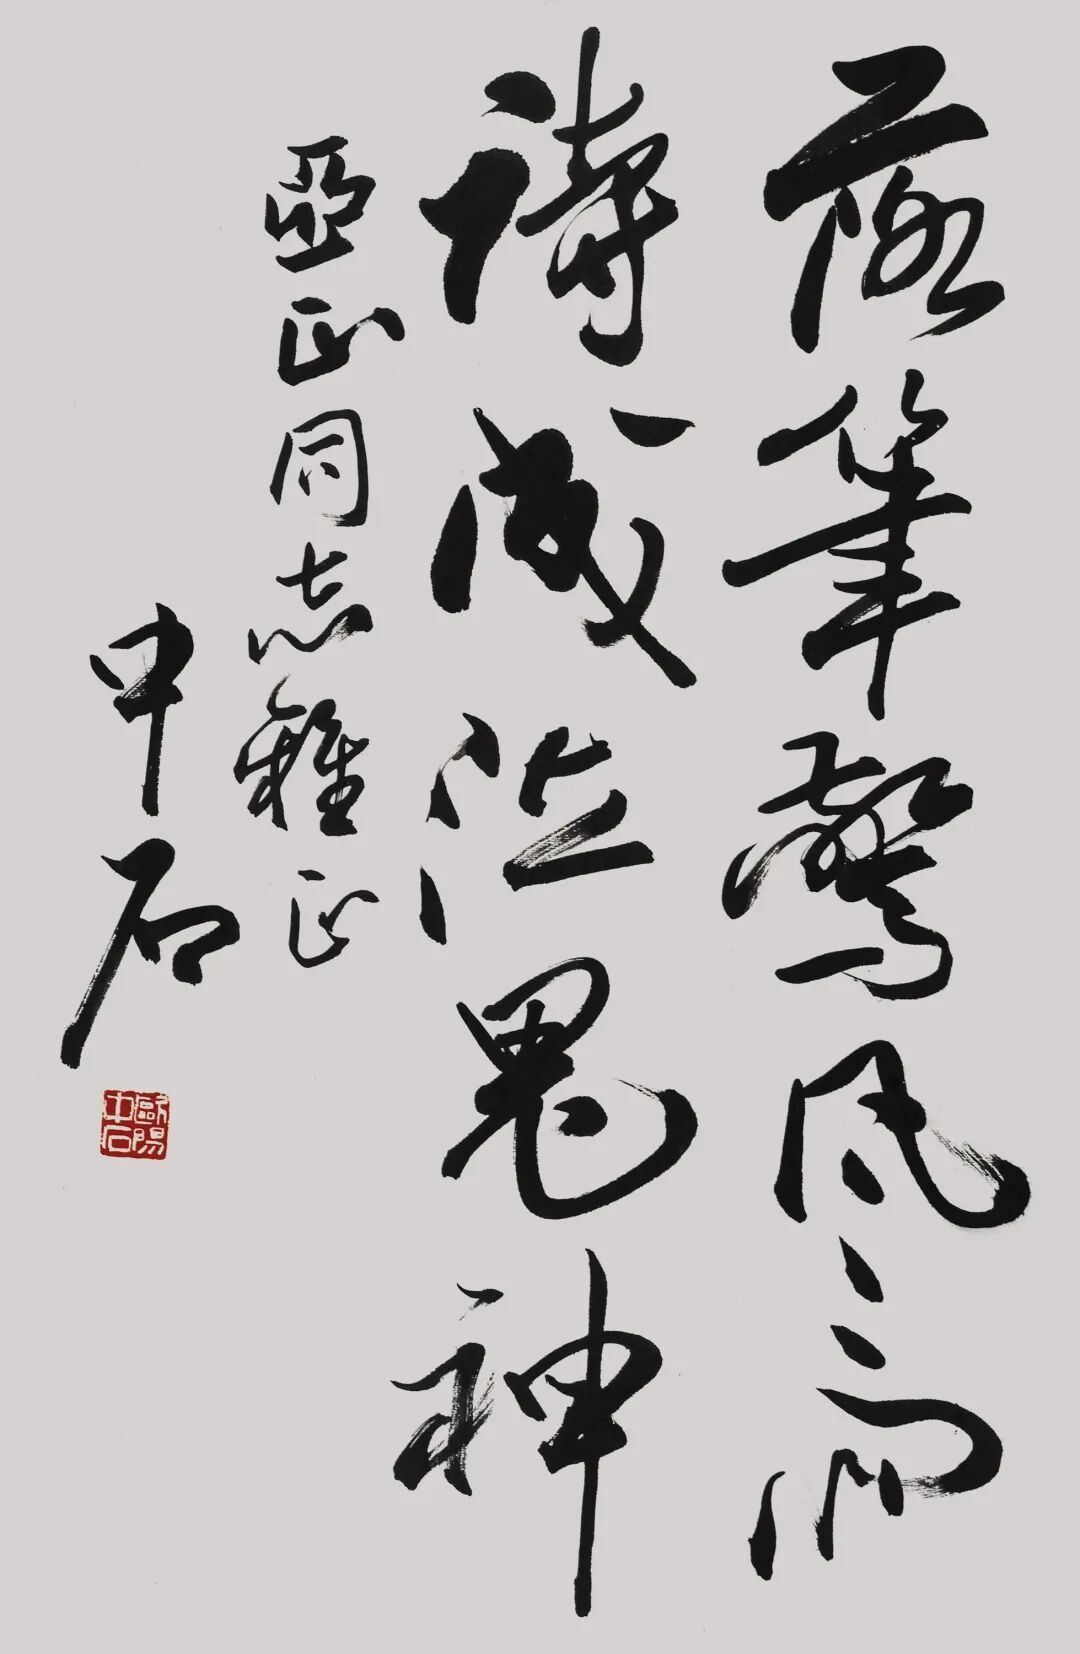 落筆驚風雨
詩成泣鬼神
亞正同志雅正
中石
歐陽中石